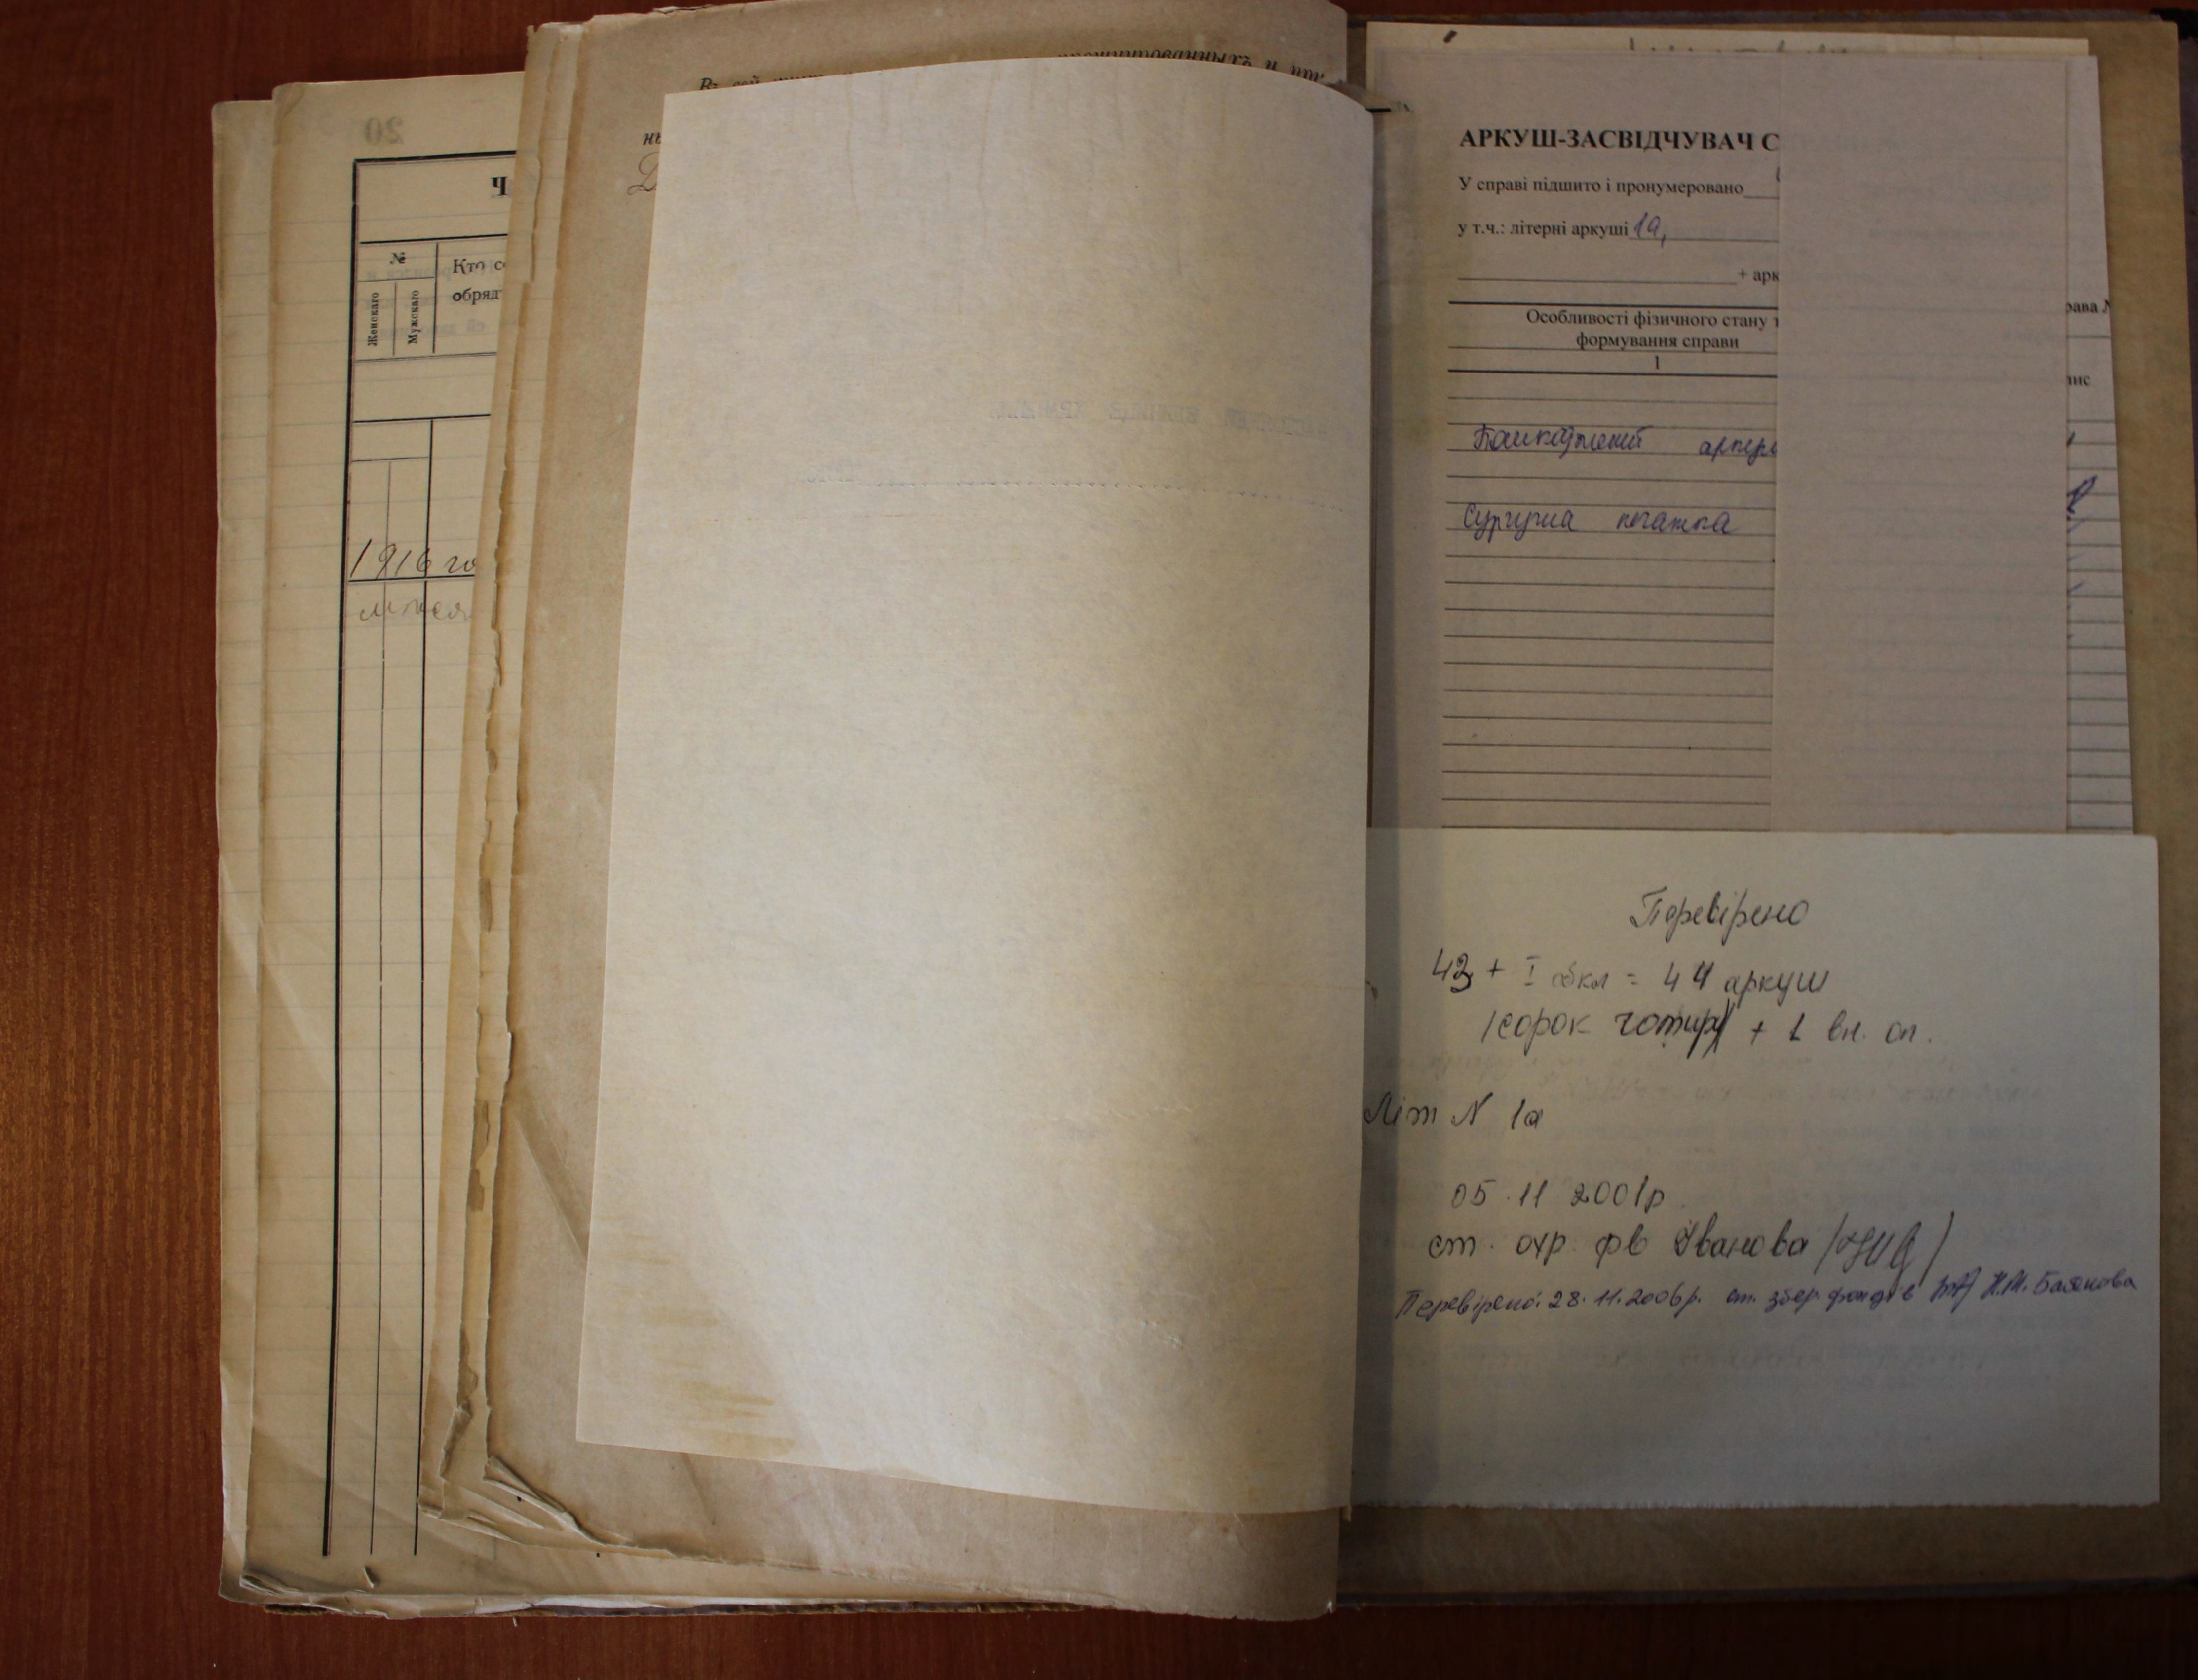 20
Ч
№
Женскаго
Мужскаго
Кто со
обряд
1916 го
Въ сей
АРКУШ-ЗАСВІДЧУВАЧ С
У справі підшито і пронумеровано
у т.ч.: літерні аркуші 1а,
+ арк
Особливості фізичного стану т
формування справи
1
Пошкоджений
Сургучна печатка
рава №
пис
Перевірено
43 + I обкл = 44 аркуш
/сорок чотири/ + 1 вн. оп.
Літ N 1а
05.11 2001р
ст. охр. фв Іванова
Перевірено: 28.11.2006р. ст. збер. фондів Н.М. Баянова